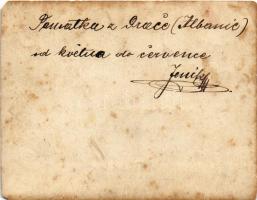 Památka z Drače (Albanie)
od května do července
Jeníky